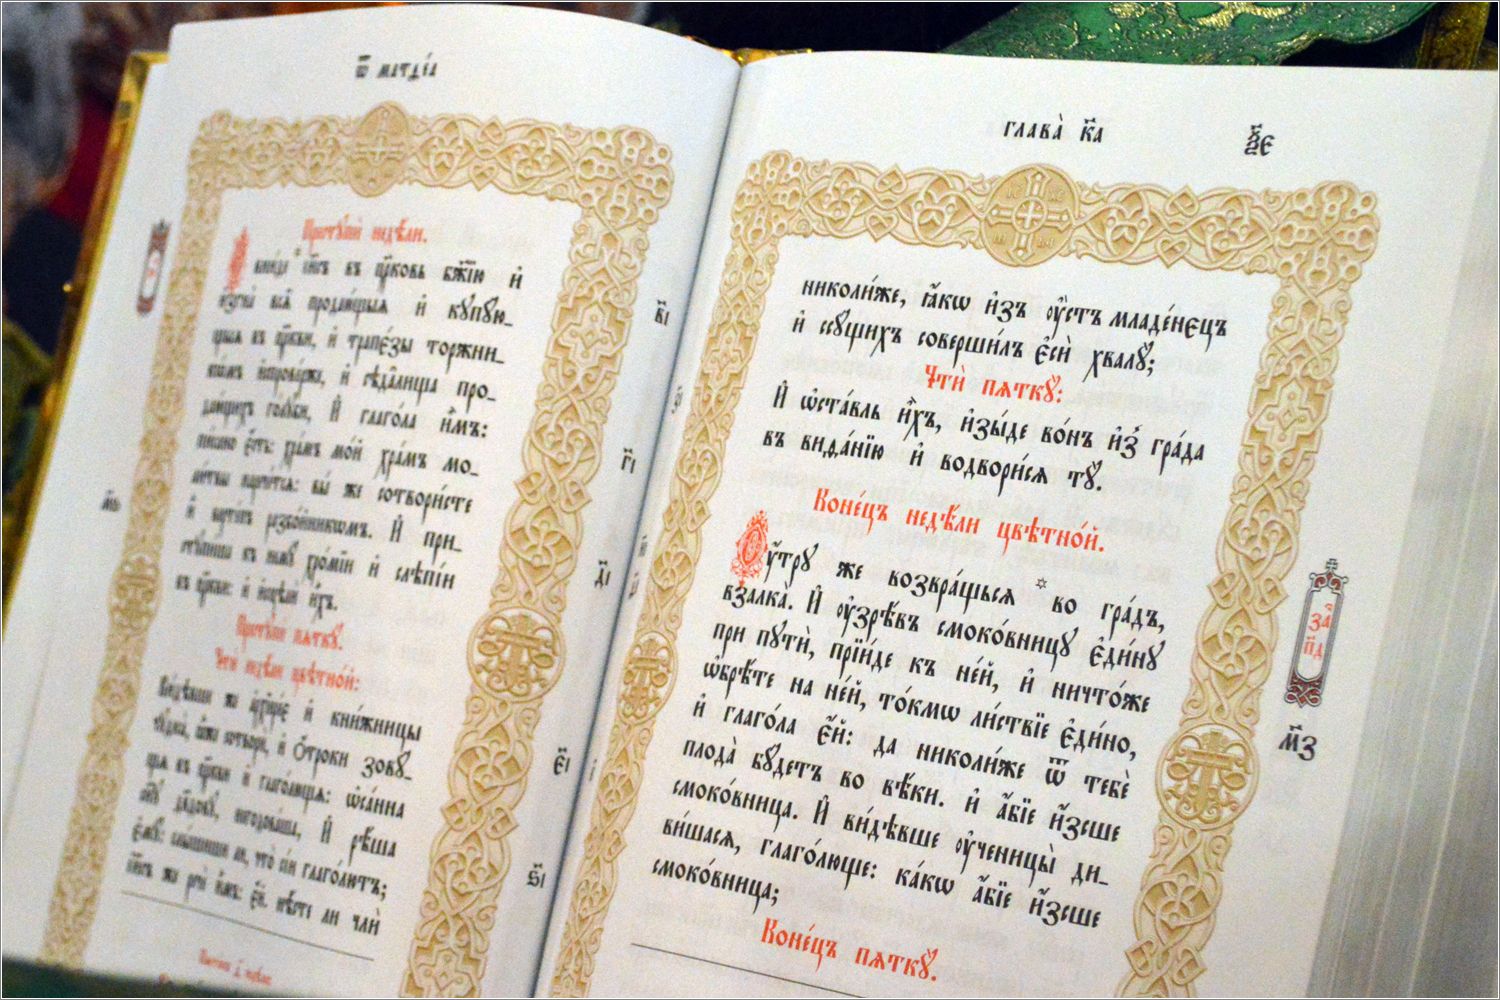 ѿ матѳе́а
Престꙋпи̑ недѣ́ли.
вни́де і҆и҃съ въ цр҃ковь бж҃їю и҆
и҆згна̀ всѧ̑ продаю́щыѧ и҆ кꙋпꙋю_
щыѧ въ цр҃кви, и҆ трапє́зы торжни_
кѡ́мъ и҆спрове́рже, и҆ сѣда̑лища про_
даю́щихъ го́лꙋби, И҆ глаго́ла и҆̀мъ:
пи́сано є҆́сть: хра́мъ мо́й хра́мъ мо_
ли́твы нарече́тсѧ: вы́ же сотвори́сте
и҆̀ верте́пъ разбо́йникѡмъ. И҆ при_
стꙋпи́ша къ немꙋ̀ хрѡмі́и и҆ слѣпі́и
въ цр҃кви: и҆ и҆сцѣлѝ и҆̀хъ.
Престꙋпи̑ пѧткꙋ̀.
Чтѝ недѣ́ли цвѣтно́й:
Ви́дѣвше же а҆рхїере́є и҆ кни́жницы
чꙋдеса̀, ꙗ҆̀же сотворѝ, и҆ ѻ҆́троки зовꙋ́_
щѧ въ цр҃кви и҆ глаго́люща: ѡ҆са́нна
сн҃ꙋ дв҃довꙋ, негодова́ша, И҆ рѣ́ша
є҆мꙋ̀: слы́шиши ли, что̀ сі́и глаго́лютъ;
І҆и҃съ же речѐ и҆̀мъ: є҆́й. нѣ́сте ли члѝ
в҃і
г҃і
д҃і
є҃і
ѕ҃і
м҃ѕ
глава̀ к҃а
х҃є
николи́же, ꙗ҆́кѡ и҆з̾ ᲂу҆́стъ младе́нєцъ
и҆ ссꙋ́щихъ соверши́лъ є҆сѝ хвалꙋ̀;
Чтѝ пѧткꙋ̀:
И҆ ѡ҆ста́вль и҆̀хъ, и҆зы́де во́нъ и҆з̾ гра́да
въ виѳа́нїю и҆ водвори́сѧ тꙋ̀.
Коне́цъ недѣ́ли цвѣтно́й.
Оу҆́трꙋ же возвра́щьсѧ во гра́дъ,
взалка̀. И҆ ᲂу҆зрѣ́въ смоко́вницꙋ є҆ди́нꙋ
при пꙋтѝ, прїи́де къ не́й, и҆ ничто́же
ѡ҆брѣ́те на не́й, то́кмѡ ли́ствїе є҆ди́но,
и҆ глаго́ла є҆́й: да николи́же ѿ тебє̀
плода̀ бꙋ́детъ во вѣ́ки. и҆ а҆́бїе и҆́зсше
смоко́вница. И҆ ви́дѣвше ᲂу҆ченицы̀ ди_
ви́шасѧ, глаго́люще: ка́кѡ а҆́бїе и҆́зсше
смоко́вница;
Коне́цъ пѧткꙋ̀.
за҃
п҃д
м҃з